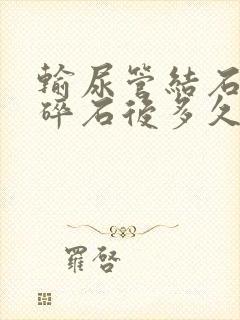 輸尿管結石
碎石後多久
羅啓